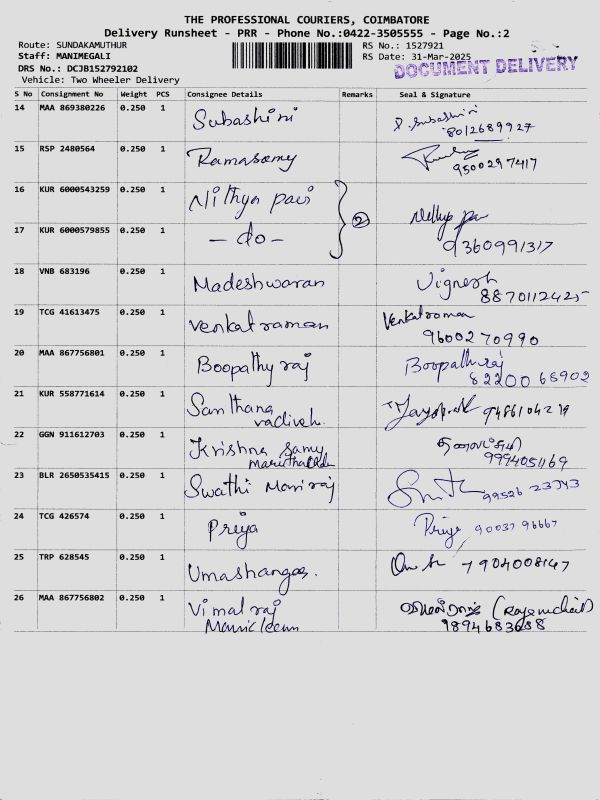 THE PROFESSIONAL COURIERS, COIMBATORE
Delivery Runsheet - PRR - Phone No.:0422-3505555 - Page No.:2
Route: SUNDAKAMUTHUR
RS No.: 1527921
Staff: MANIMEGALI
RS Date: 31-Mar-2025
DRS No.: DCJB152792102
DOCUMENT DELIVERY
Vehicle: Two Wheeler Delivery
S No Consignment No Weight PCS Consignee Details Remarks Seal & Signature
14 MAA 869380226 0.250 1 Subashini P. Subashini
8012689927
15 RSP 2480564 0.250 1 Ramasamy
9500297417
16 KUR 6000543259 0.250 1 Nithya pai 2
17 KUR 6000579855 0.250 1 - do - 9360991317
18 VNB 683196 0.250 1 Madeshwaran Vignesh
8870112425
19 TCG 41613475 0.250 1 Venkatraman Venkatraman
9600270990
20 MAA 867756801 0.250 1 Boopathy raj Boopathiraj
82200 68902
21 KUR 558771614 0.250 1 Santhana
vadivel.
22 GGN 911612703 0.250 1 Krishna Samy
9994051169
23 BLR 2650535415 0.250 1 Swathi Maniraj
99526 23743
24 TCG 426574 0.250 1 Priya Priya 90037 96667
25 TRP 628545 0.250 1 7904008147
26 MAA 867756802 0.250 1 Vimal raj
9894683688